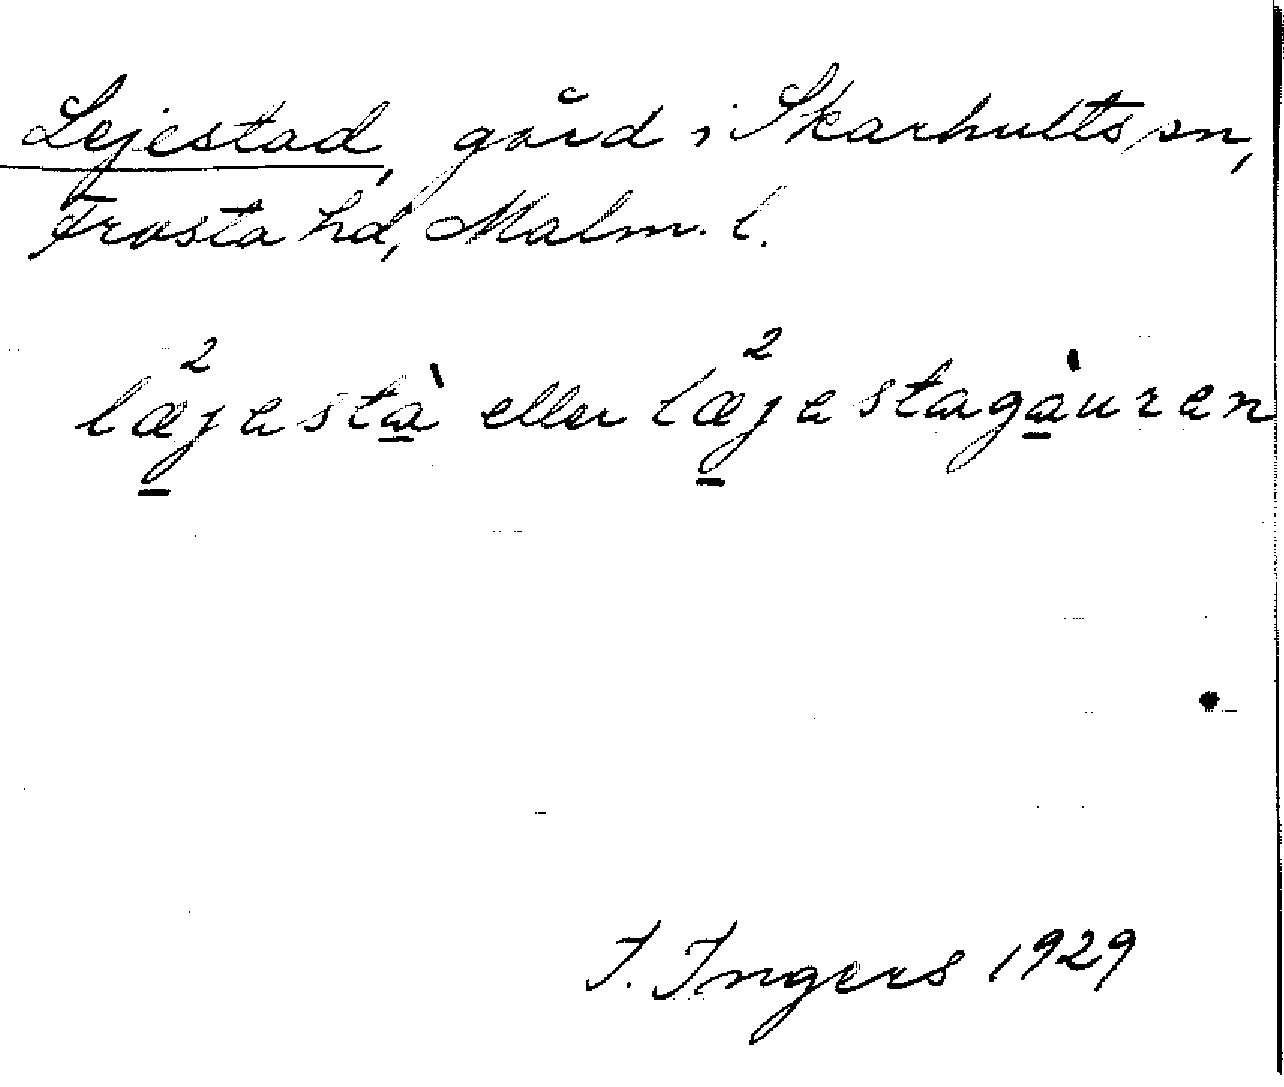 Lejestad, gård i Skarhults sn,
Frosta hd, Malm. l.
læ²jestà eller læ²jestagàuren
I. Ingers 1929